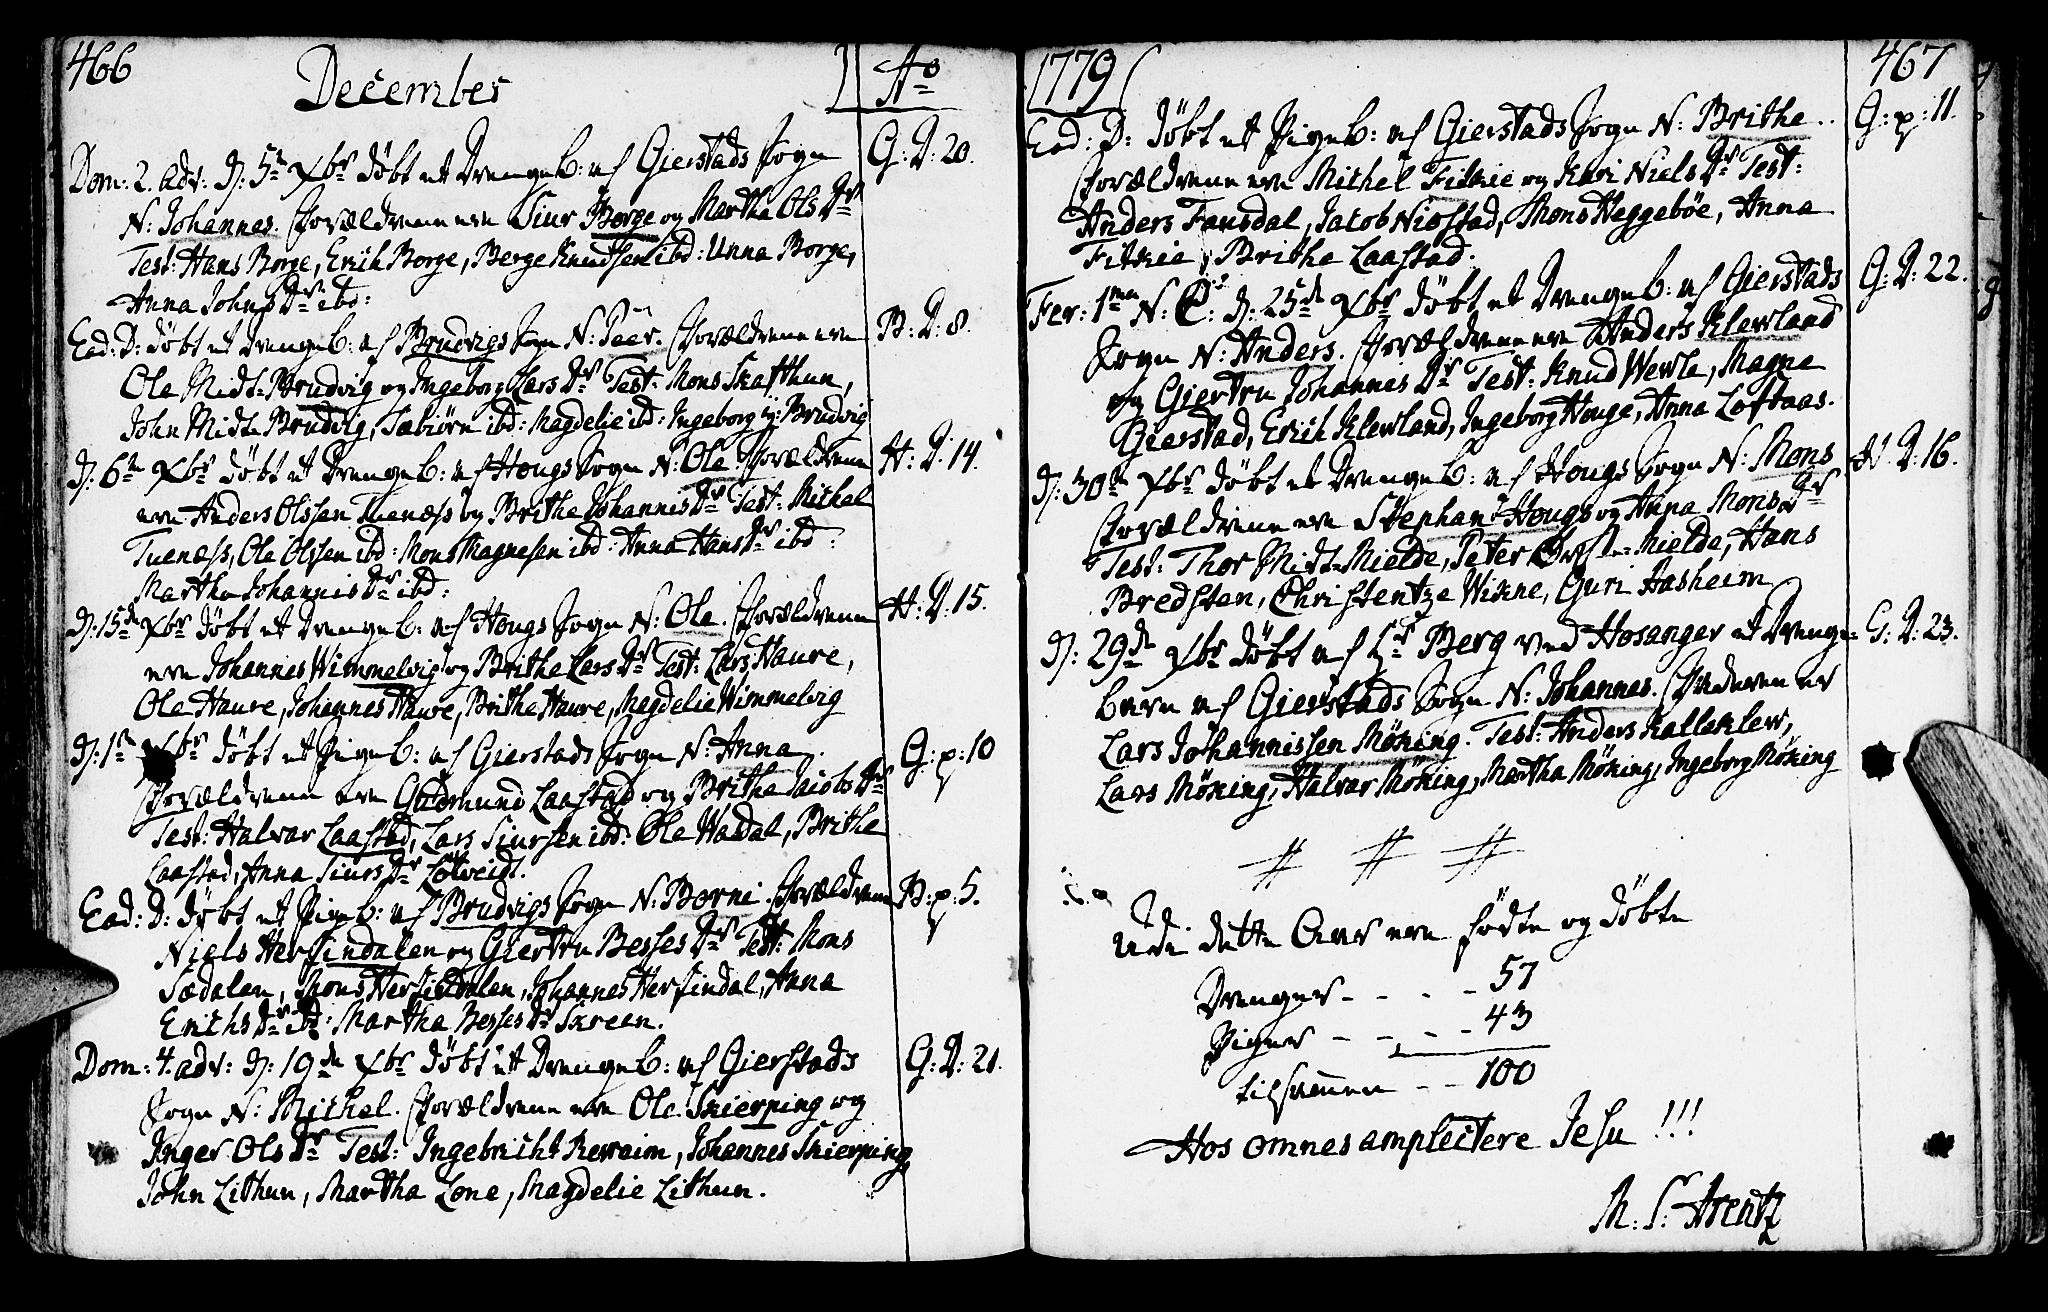 466
December
Ao
Dom: 2. adv: D: 5te Xbr döbt et Drenge b: af Gierstads Sogn
G: D: 20.
N: Johannes. Forældrene ere Siur Borge og Martha Ols Dr
Test: Hans Borge, Erich Borge, Berge Knudsen ibd: Unna Borge,
Anna Johns Dr ibd:
Ead: D: döbt et Drenge b: af Brudvigs Sogn N: Peer. Forældrene ere
B: D: 8.
Ole Midt-Brudvig og Ingeborg Lars Dr Test: Mons Skafthun,
John Midt-Brudvig, Sæbiörn ibd: Magdelie ibd: Ingeborg y: Brudvig
D: 6te Xbr döbt et Drenge b: af Hougs Sogn N: Ole. Forældrene
H: D: 14.
ere Anders Olssen Tuenæss og Brithe Johannis Dr Test: Michel
Tuenæss, Ole Olsen ibd: Mons Magnesen ibd: Anna Hans Dr ibd:
Martha Johannis Dr ibd:
D: 15de Xbr döbt et Drenge b: af Hougs Sogn N: Ole. Forældrene
H: D: 15.
ere Johannes Wimmelvig og Brithe Lars Dr Test: Lars Haure,
Ole Haure, Johannes Haure, Brithe Haure, Magdelie Wimmelvig
D: Xbr döbt et Pige b: af Gierstads Sogn N: Anna.
G: p: 10
Forældrene ere Gudmund Laastad og Britha Jacobs Dr
Test: Halvar Laastad, Lars Siursen ibd: Ole Wadal, Brithe
Laastad, Anna Siurs Dr Lötveidt.
Ead: D: döbt et Pige b: af Brudvigs Sogn N: Borni. Forældrene
B: p: 5.
Niels Hersindalen og Giertru Besses Dr Test: Mons
Sædalen, Mons Hersindalen, Johannes Hersindal, Anna
Erichs Dr ibd: Martha Besses Dr Skreen.
Dom: 4. adv: D: 19de Xbr döbt et Drenge b: af Gierstads
G: D: 21.
Sogn N: Michel. Forældrene ere Ole Skierping og
Inger Ols Dr Test: Ingebricht Revraim, Johannes Skierping
John Lithun, Martha Lone, Magdelie Lithun.
1779
467
Ead: D: döbt et Pige b: af Gierstads Sogn N: Brithe
G: p: 11.
Forældrene ere Michel Fitkie og Kari Niels Dr Test:
Anders Fansdal, Jacob Niostad, Mons Heggebøe, Anna
Fitkie, Brithe Laastad.
Fer: 1ma N: C: D: 25de Xbr döbt et Drenge b: af Gierstads
G: D: 22.
Sogn N: Anders. Forældrene ere Anders Klewland
og Giertru Johannes Dr Test: Knud Wewle, Magne
Gierstad, Erich Klewland, Ingeborg Houge, Anna Loftaas.
D: 30te Xbr döbt et Drenge b: af Hougs Sogn N: Mons
H. D: 16.
Forældrene ere Stephan Hougs og Anna Mons Dr
Test: Thor Midt-Mielde, Peter Mielde, Hans
Bredsten, Christentze Wikne, Guri Aasheim
D: 29de Xbr döbt af Hr Berg ved Hosanger et Drenge
G: D: 23.
barn af Gierstads Sogn N: Johannes. Faderen er
Lars Johannissen Möking. Test: Anders Kalleklew,
Lars Möking, Halvar Möking, Martha Möking, Ingeborg Möking
Udi dette Aar ere födte og döbte
Drenger - - - - 57
Piger - - - - 43
tilsamen - - 100
Hos omnes amplectere Jesu !!!
M: S: Arentz